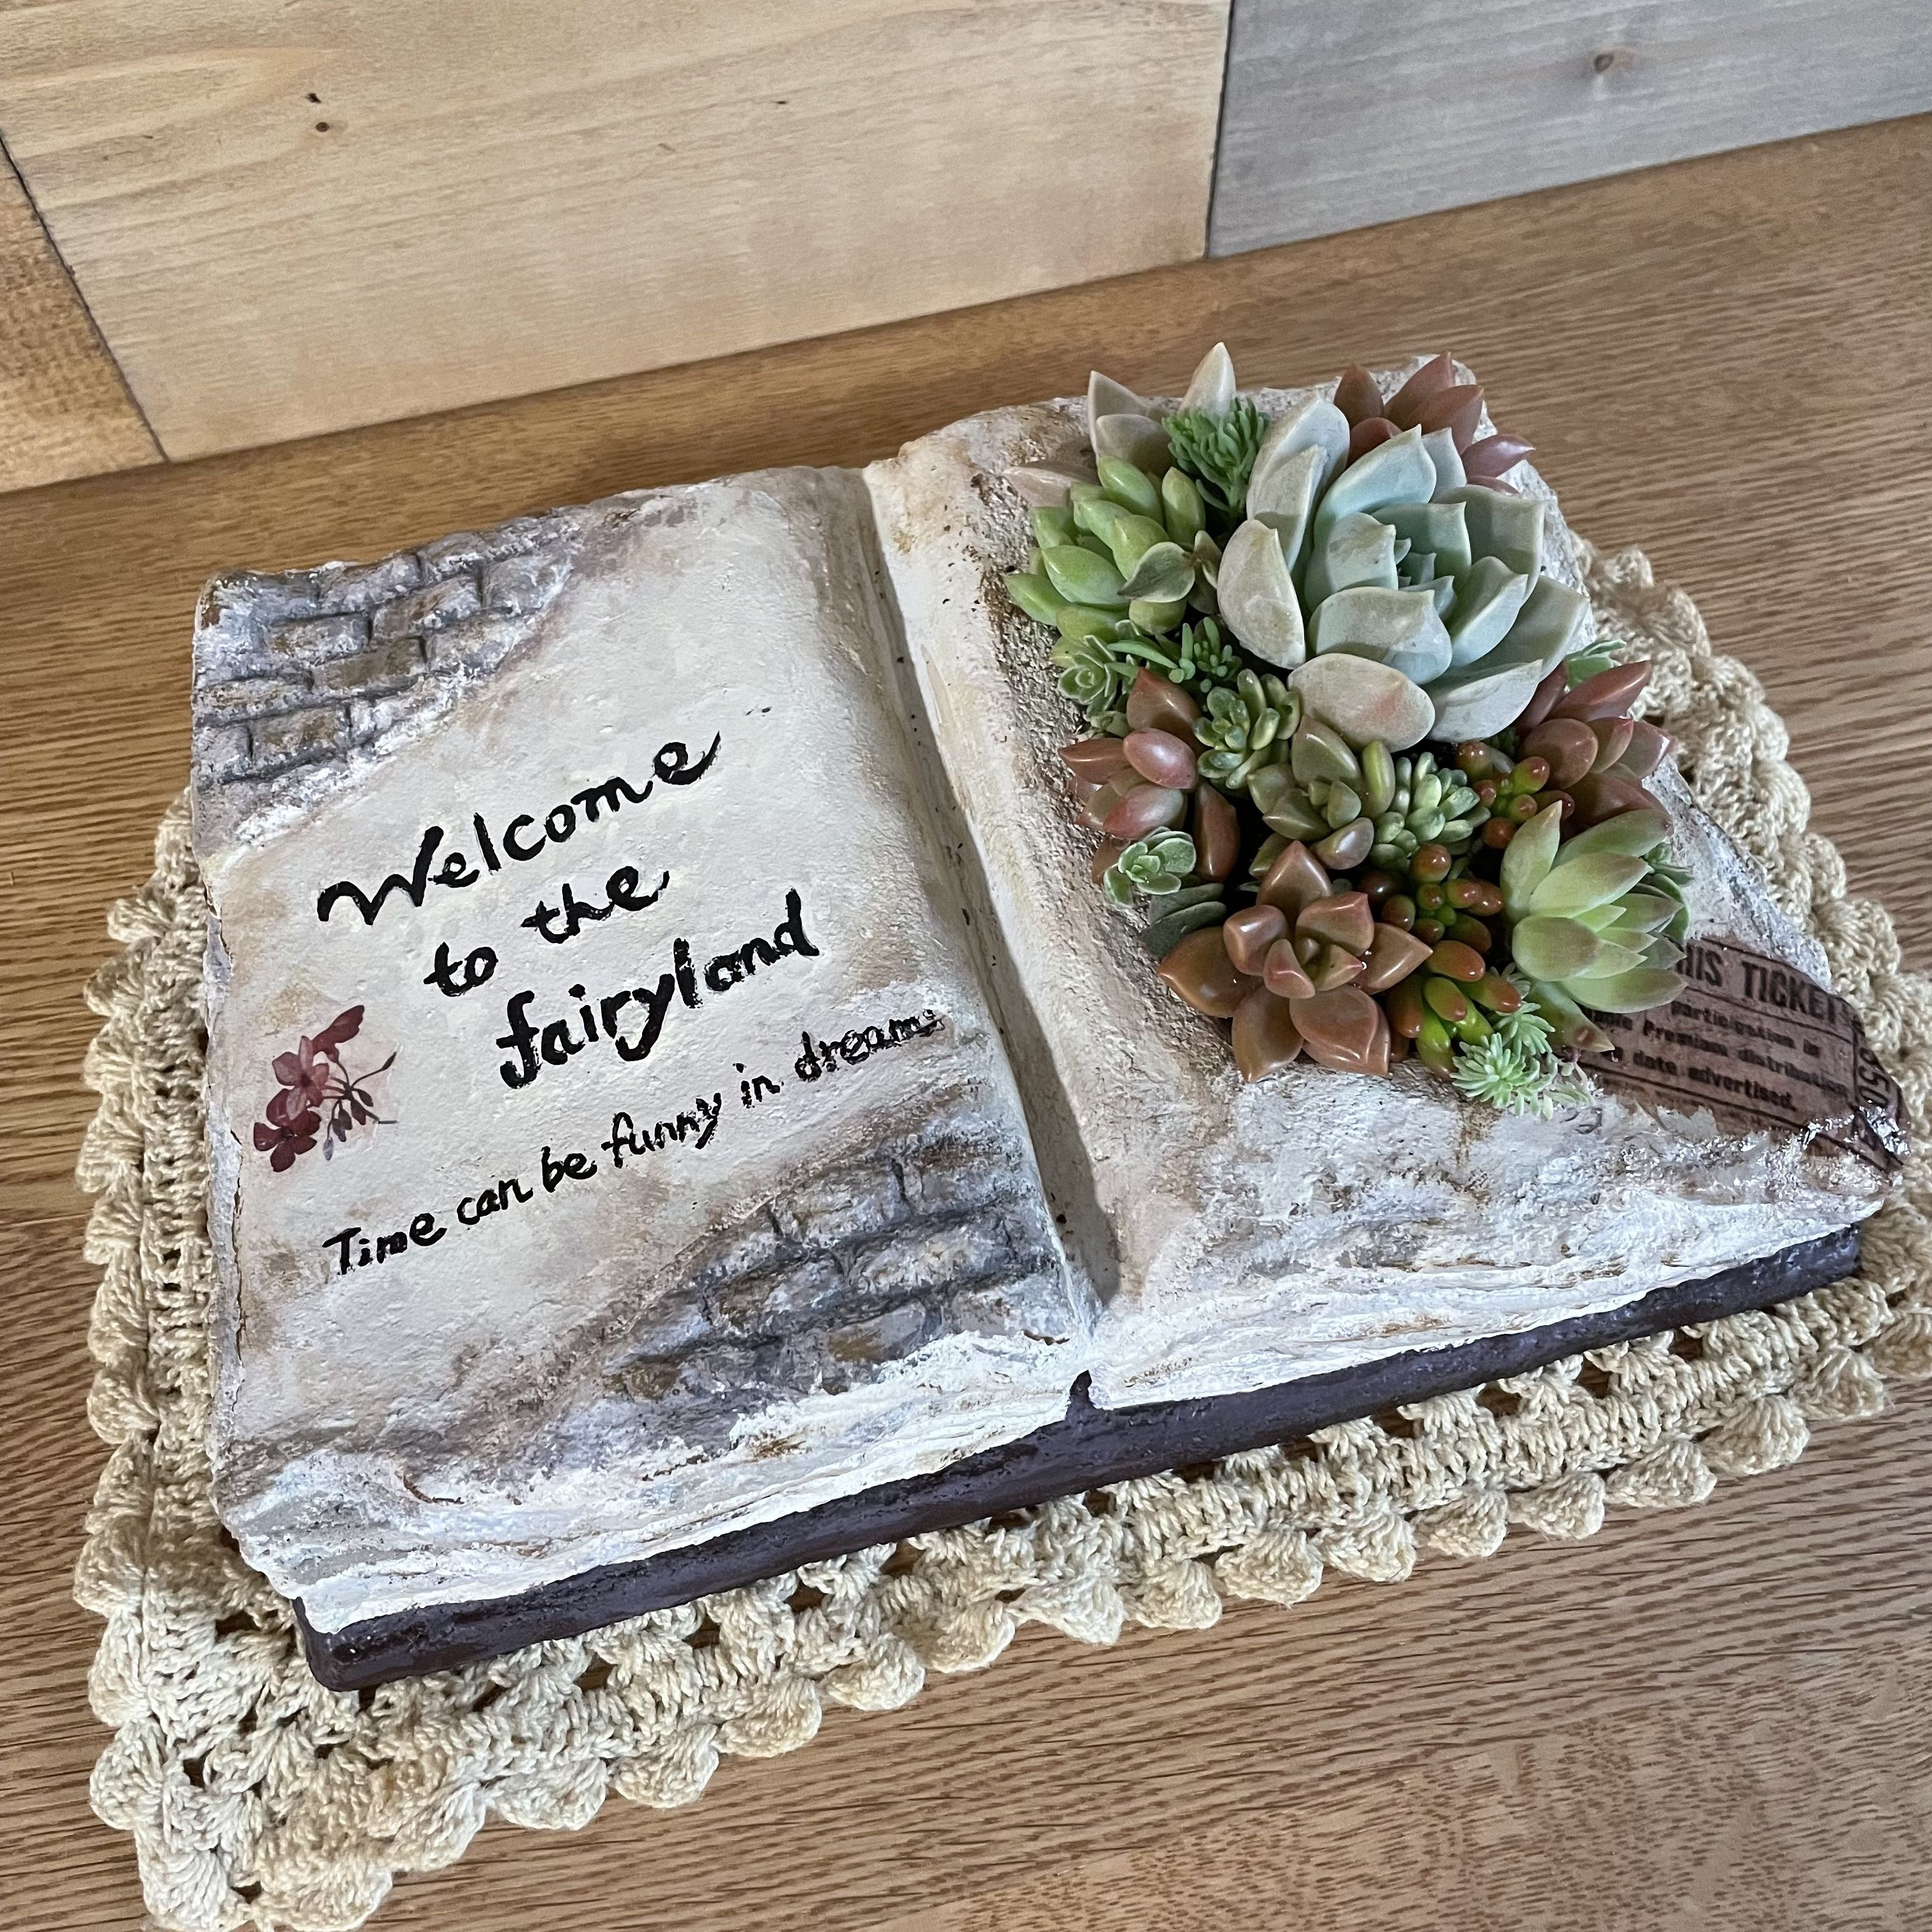 Welcome
to the
fairyland
Time can be funny in dreams
HIS TICKET
participation in
the Premium distribution
to date advertised.